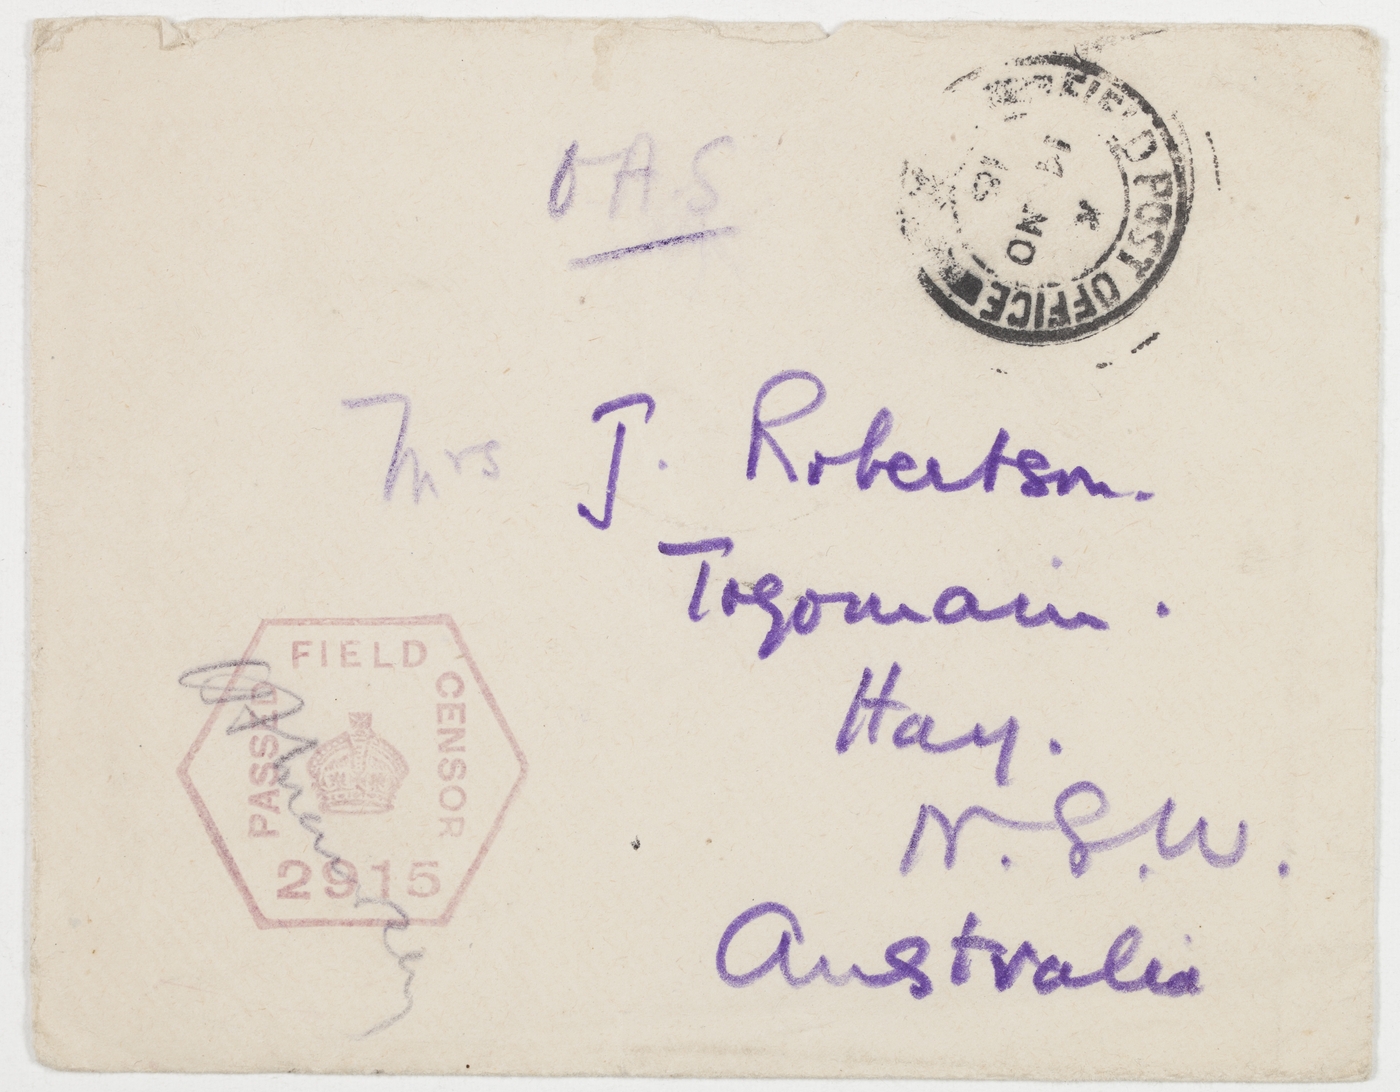 OAS
FIELD POST OFFICE
K
14
NO
18
Mrs J. Robertson.
Togomain.
Hay.
N.S.W.
Australia
PASSED FIELD CENSOR
2915